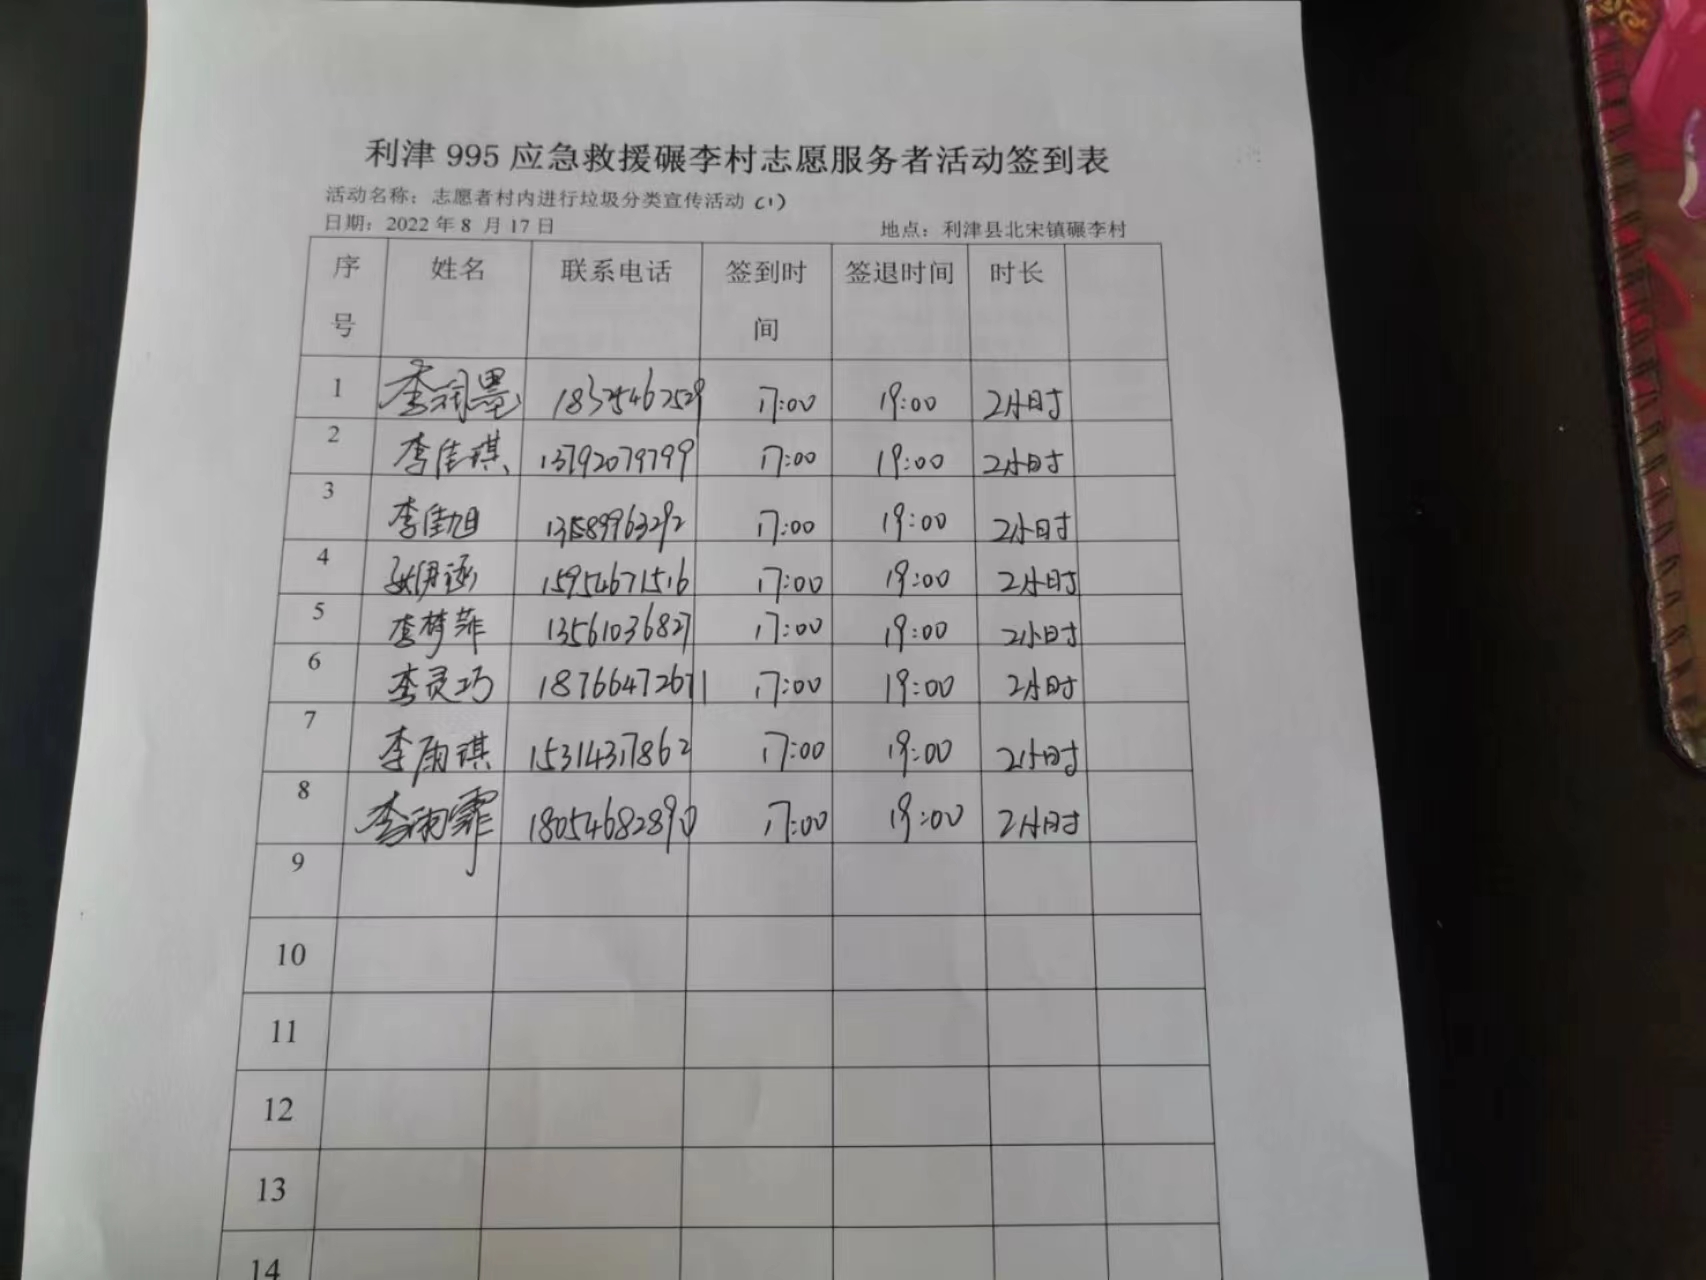 利津 995 应急救援碾李村志愿服务者活动签到表
活动名称：志愿者村内进行垃圾分类宣传活动（1）
日期：2022 年 8 月 17 日 地点：利津县北宋镇碾李村
序号 姓名 联系电话 签到时间 签退时间 时长
1 李润墨 18325462529 17:00 19:00 2小时
2 李佳琪 13792079799 17:00 19:00 2小时
3 李佳旭 13589963292 17:00 19:00 2小时
4 15954671516 17:00 19:00 2小时
5 李梦菲 13561036827 17:00 19:00 2小时
6 李灵巧 18766472671 17:00 19:00 2小时
7 李雨琪 15314317862 17:00 19:00 2小时
8 李雨霏 18054682890 17:00 19:00 2小时
9
10
11
12
13
14